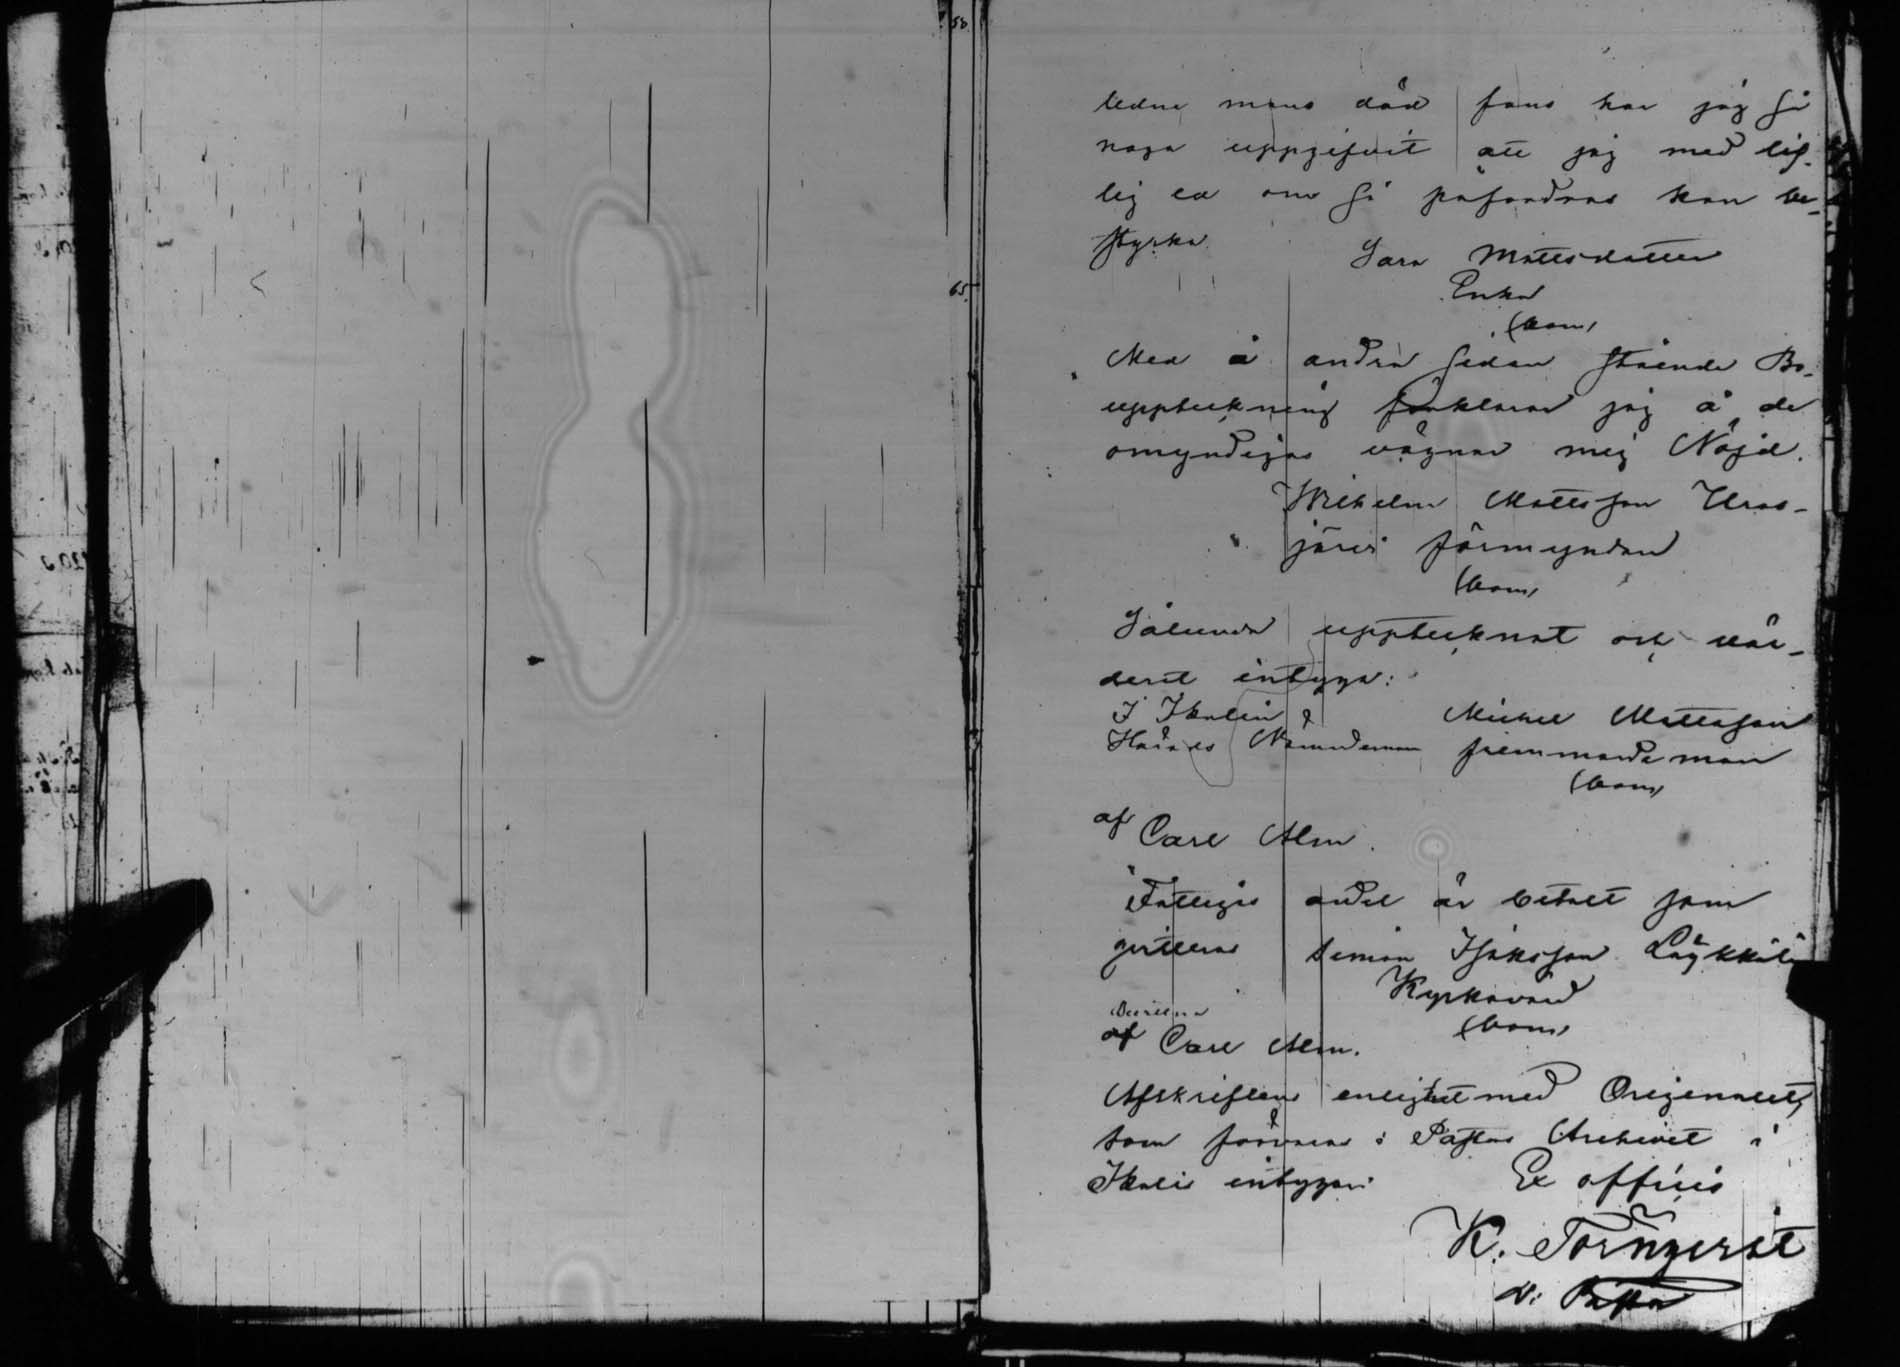 58.
65.
ledne mans död fans har jag så
noga uppgifvit att jag med lif-
lig ed om så påfordras kan be-
styrka.
Sara Mattsdotter
Enka
(bom)
Med å andra sedan stående Bo-
uppteckning förklarar jag å de
omyndigas vägnar mig Nöjd.
Wilhelm Mattsson Uras-
järvi förmyndare
(bom)
Sålunda uppteknat och vär-
derit intyga:
J Ikalin
Härads Nämndeman
Michel Mattsson
fremmande man
(bom)
af Carl Alm.
Fattiges andel är betalt som
qvitteras Simon Isaksson
Kyrkovärd
(bom)
af Carl Alm.
Afskriftens enlighet med Originalet,
som förvaras i Pastors Archivet i
Ikalis intygar:
Ex officio
K. Törnqvist
v: Pastor